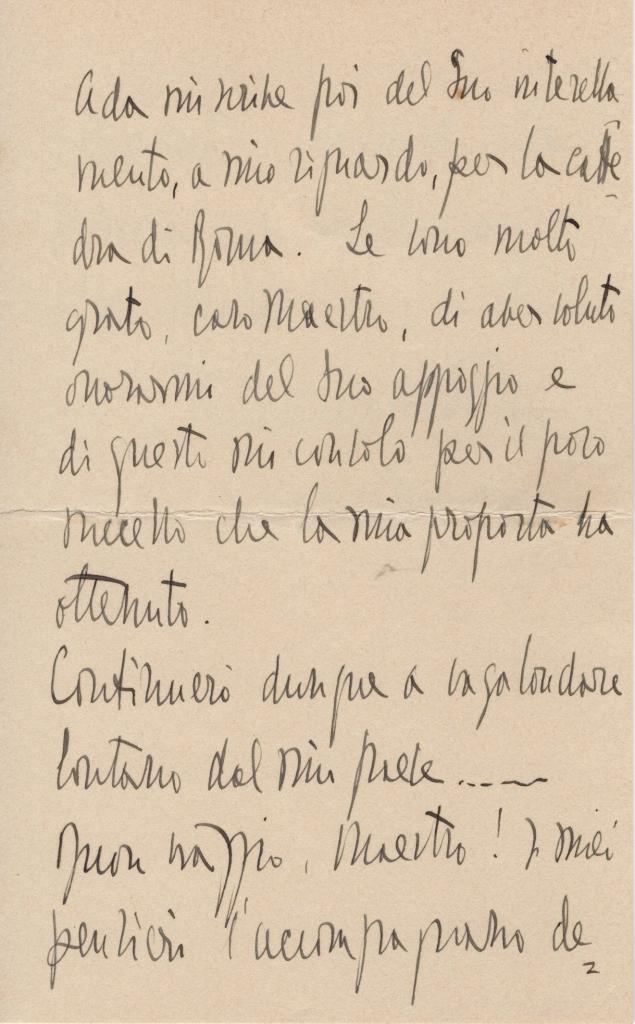 Ada mi scrive poi del Suo interessa
mento, a mio riguardo, per la catte
dra di Roma. Le sono molto
grato, caro Maestro, di aver voluto
onorarmi del Suo appoggio e
di questo mi consolo per il poco
successo che la mia proposta ha
ottenuto.
Continuerò dunque a vagabondare
lontano dal mio paese.....
Buon viaggio, Maestro! I miei
pensieri l'accompagnano de
2